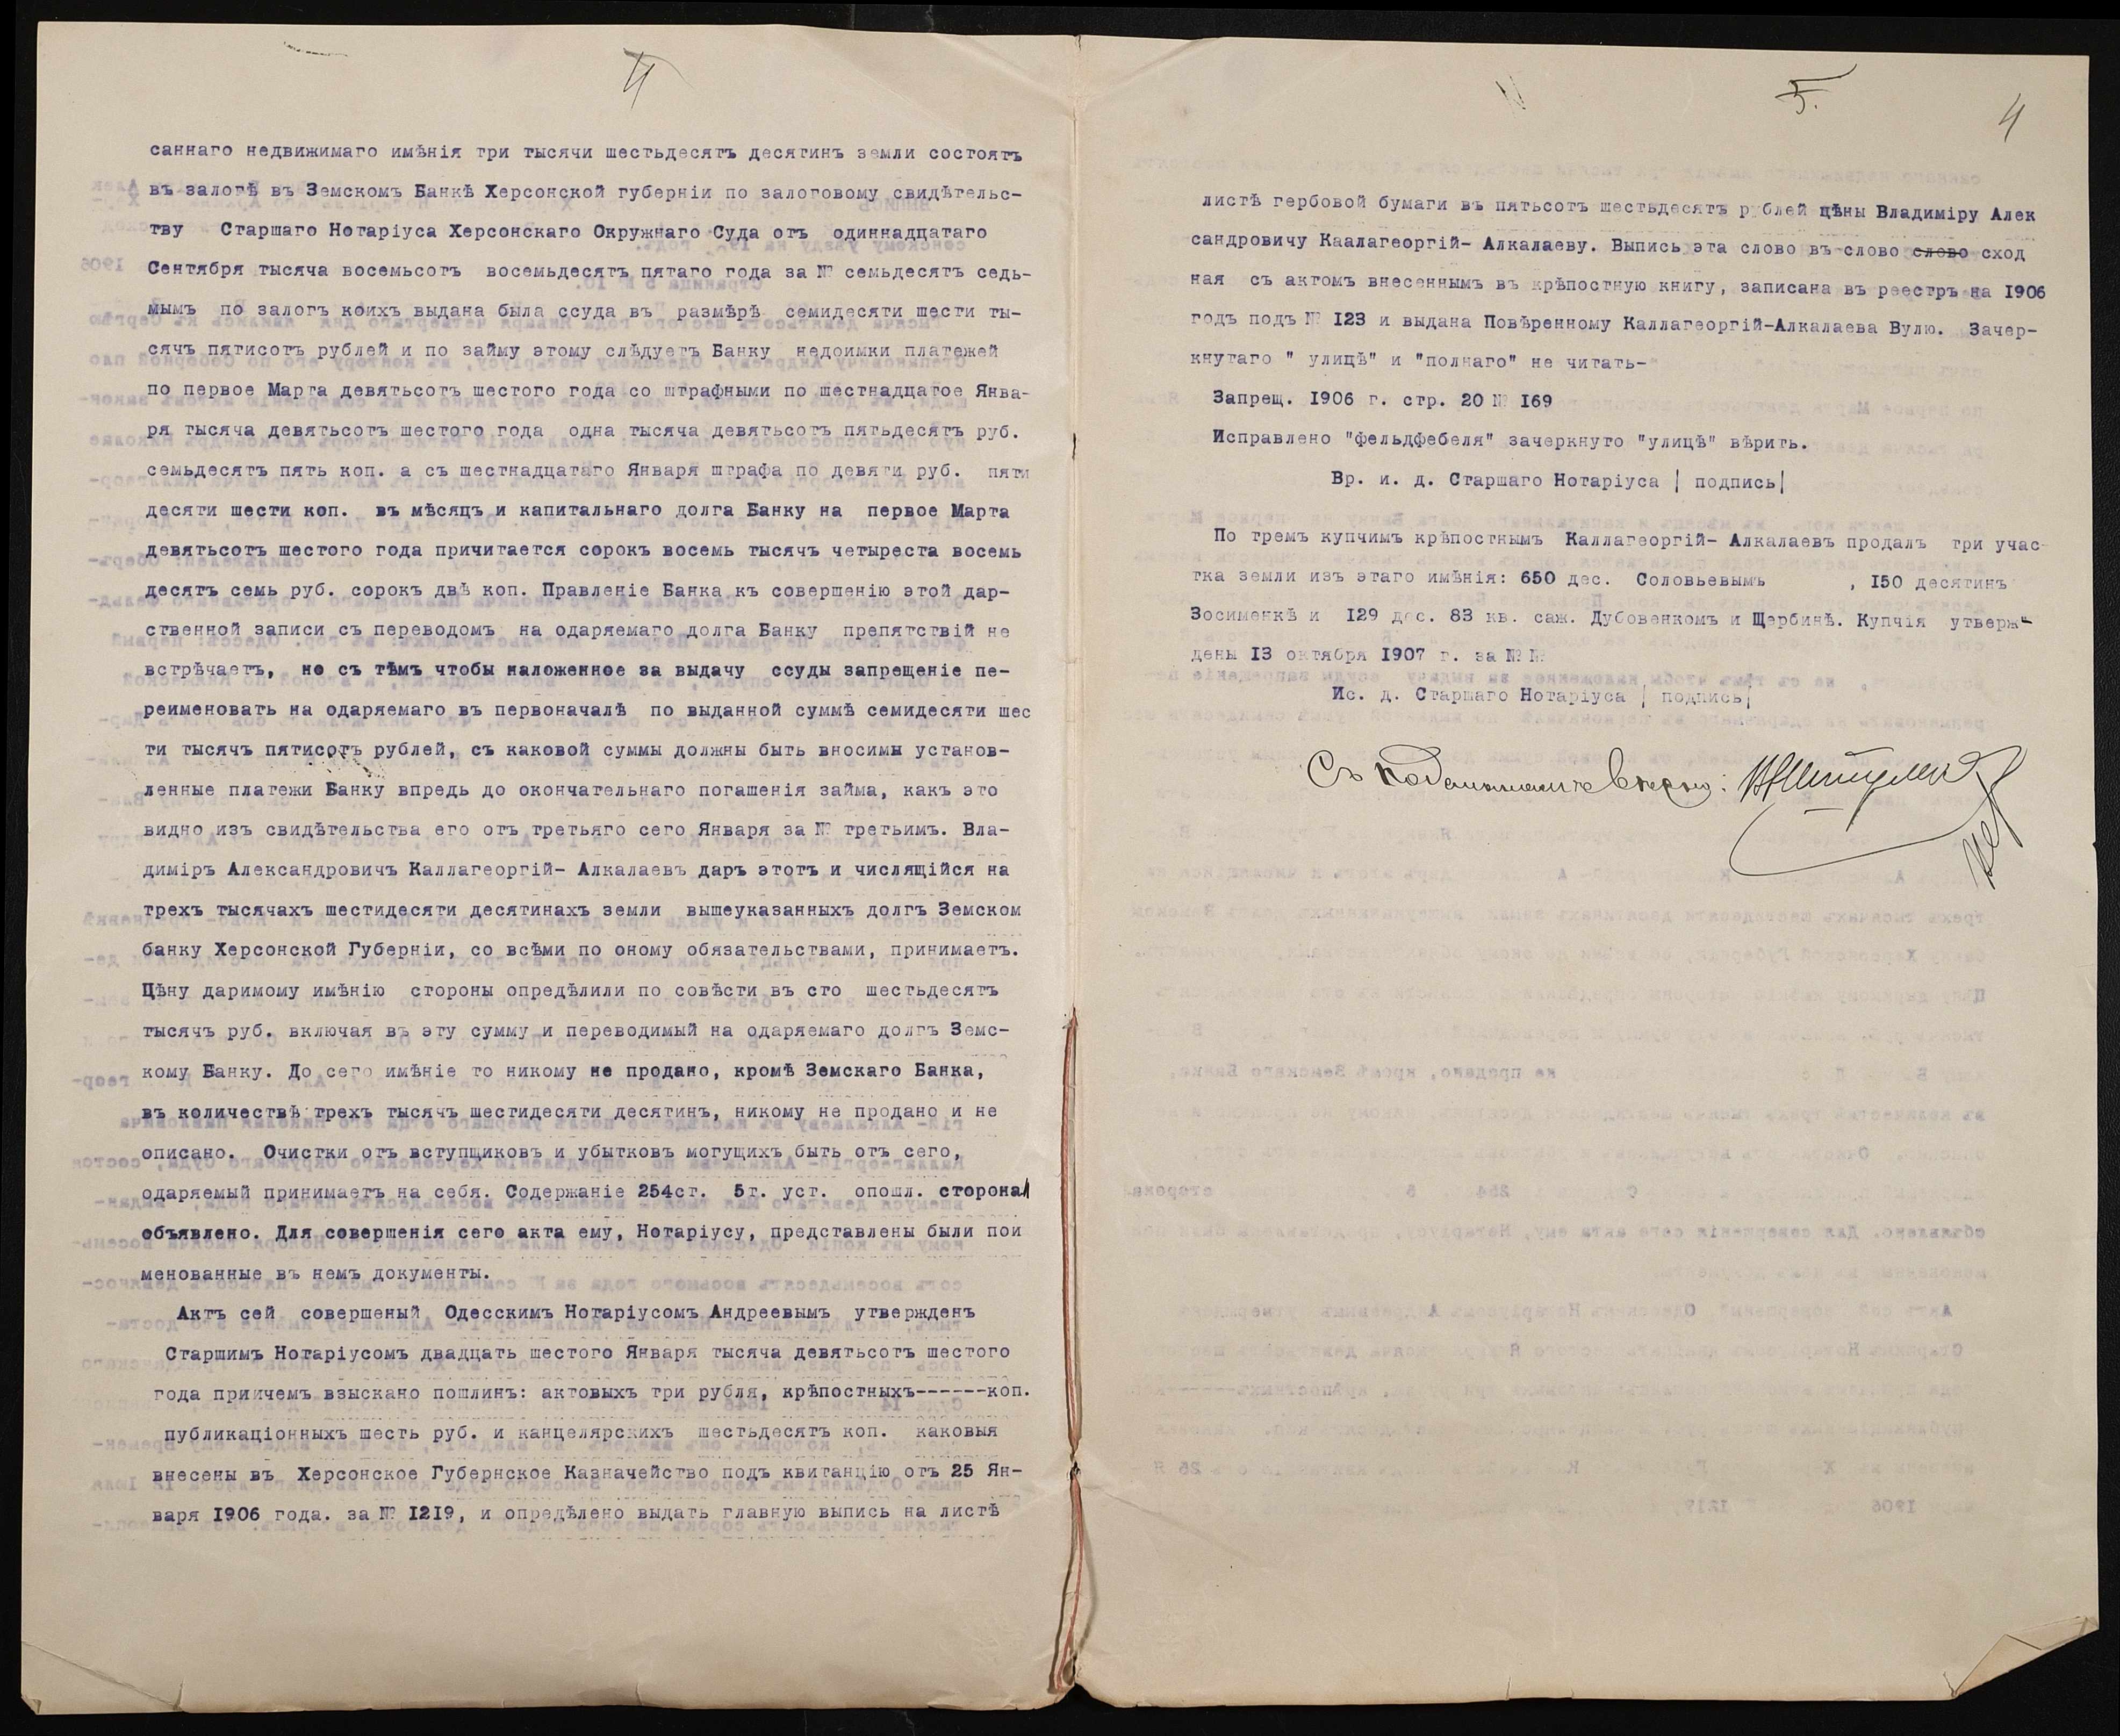 4
саннаго недвижимаго имѣнія три тысячи шестьдесятъ десятинъ земли состоятъ
въ залогѣ въ Земскомъ Банкѣ Херсонской губерніи по залоговому свидѣтельс-
тву Старшаго Нотаріуса Херсонскаго Окружнаго Суда отъ одиннадцатаго
Сентября тысяча восемьсотъ восемьдесятъ пятаго года за № семьдесятъ седь-
мымъ по залогъ коихъ выдана была ссуда въ размѣрѣ семидесяти шести ты-
сячъ пятисотъ рублей и по займу этому слѣдуетъ Банку недоимки платежей
по первое Марта девятьсотъ шестого года со штрафными по шестнадцатое Янва-
ря тысяча девятьсотъ шестого года одна тысяча девятьсотъ пятьдесятъ руб.
семьдесятъ пять коп. а съ шестнадцатаго Января штрафа по девяти руб. пяти
десяти шести коп. въ мѣсяцъ и капитальнаго долга Банку на первое Марта
девятьсотъ шестого года причитается сорокъ восемь тысячъ четыреста восемь
десятъ семь руб. сорокъ двѣ коп. Правленіе Банка къ совершенію этой дар-
ственной записи съ переводомъ на одаряемаго долга Банку препятствій не
встрѣчаетъ, но съ тѣмъ чтобы наложенное за выдачу ссуды запрещеніе пе-
реименовать на одаряемаго въ первоначалѣ по выданной суммѣ семидесяти шес
ти тысячъ пятисотъ рублей, съ каковой суммы должны быть вносимы установ-
ленные платежи Банку впредь до окончательнаго погашенія займа, какъ это
видно изъ свидѣтельства его отъ третьяго сего Января за № третьимъ. Вла-
димiръ Александровичъ Каллагеоргій- Алкалаевъ даръ этотъ и числящійся на
трехъ тысячахъ шестидесяти десятинахъ земли вышеуказанныхъ долгъ Земском
банку Херсонской Губерніи, со всѣми по оному обязательствами, принимаетъ.
Цѣну даримому имѣнію стороны опредѣлили по совѣсти въ сто шестьдесятъ
тысячъ руб. включая въ эту сумму и переводимый на одаряемаго долгъ Земс-
кому Банку. До сего имѣніе то никому не продано, кромѣ Земскаго Банка,
въ количествѣ трехъ тысячъ шестидесяти десятинъ, никому не продано и не
описано. Очистки отъ вступщиковъ и убытковъ могущихъ быть отъ сего,
одаряемый принимаетъ на себя. Содержаніе 254ст. 5т. уст. опошл. сторонам
объявлено. Для совершенія сего акта ему, Нотаріусу, представлены были пои
менованные въ немъ документы.
Актъ сей совершеный Одесскимъ Нотаріусомъ Андреевымъ утвержденъ
Старшимъ Нотаріусомъ двадцать шестого Января тысяча девятьсотъ шестого
года приичемъ взыскано пошлинъ: актовыхъ три рубля, крѣпостныхъ------коп.
публикаціонныхъ шесть руб. и канцелярскихъ шестьдесятъ коп. каковыя
внесены въ Херсонское Губернское Казначейство подъ квитанцію отъ 25 Ян-
варя 1906 года. за № 1219, и опредѣлено выдать главную выпись на листѣ
5.
4
листѣ гербовой бумаги въ пятьсотъ шестьдесятъ рублей цѣны Владиміру Алек
сандровичу Каалагеоргій- Алкалаеву. Выпись эта слово въ слово слово сход
ная съ актомъ внесеннымъ въ крѣпостную книгу, записана въ реестръ на 1906
годъ подъ № 123 и выдана Повѣренному Каллагеоргій-Алкалаева Вулю. Зачер-
кнутаго " улицѣ" и "полнаго" не читать-
Запрещ. 1906 г. стр. 20 № 169
Исправлено "фельдфебеля" зачеркнуто "улицѣ" вѣрить.
Вр. и. д. Старшаго Нотаріуса / подпись/
По тремъ купчимъ крѣпостнымъ Каллагеоргій- Алкалаевъ продалъ три учас-
тка земли изъ этаго имѣнія: 650 дес. Соловьевымъ , 150 десятинъ
Зосименкѣ и 129 дес. 83 кв. саж. Дубовенкомъ и Щербинѣ. Купчія утверж-
дены 13 октября 1907 г. за №№
Ис. д. Старшаго Нотаріуса / подпись/
Съ подлиннымъ вѣрно: